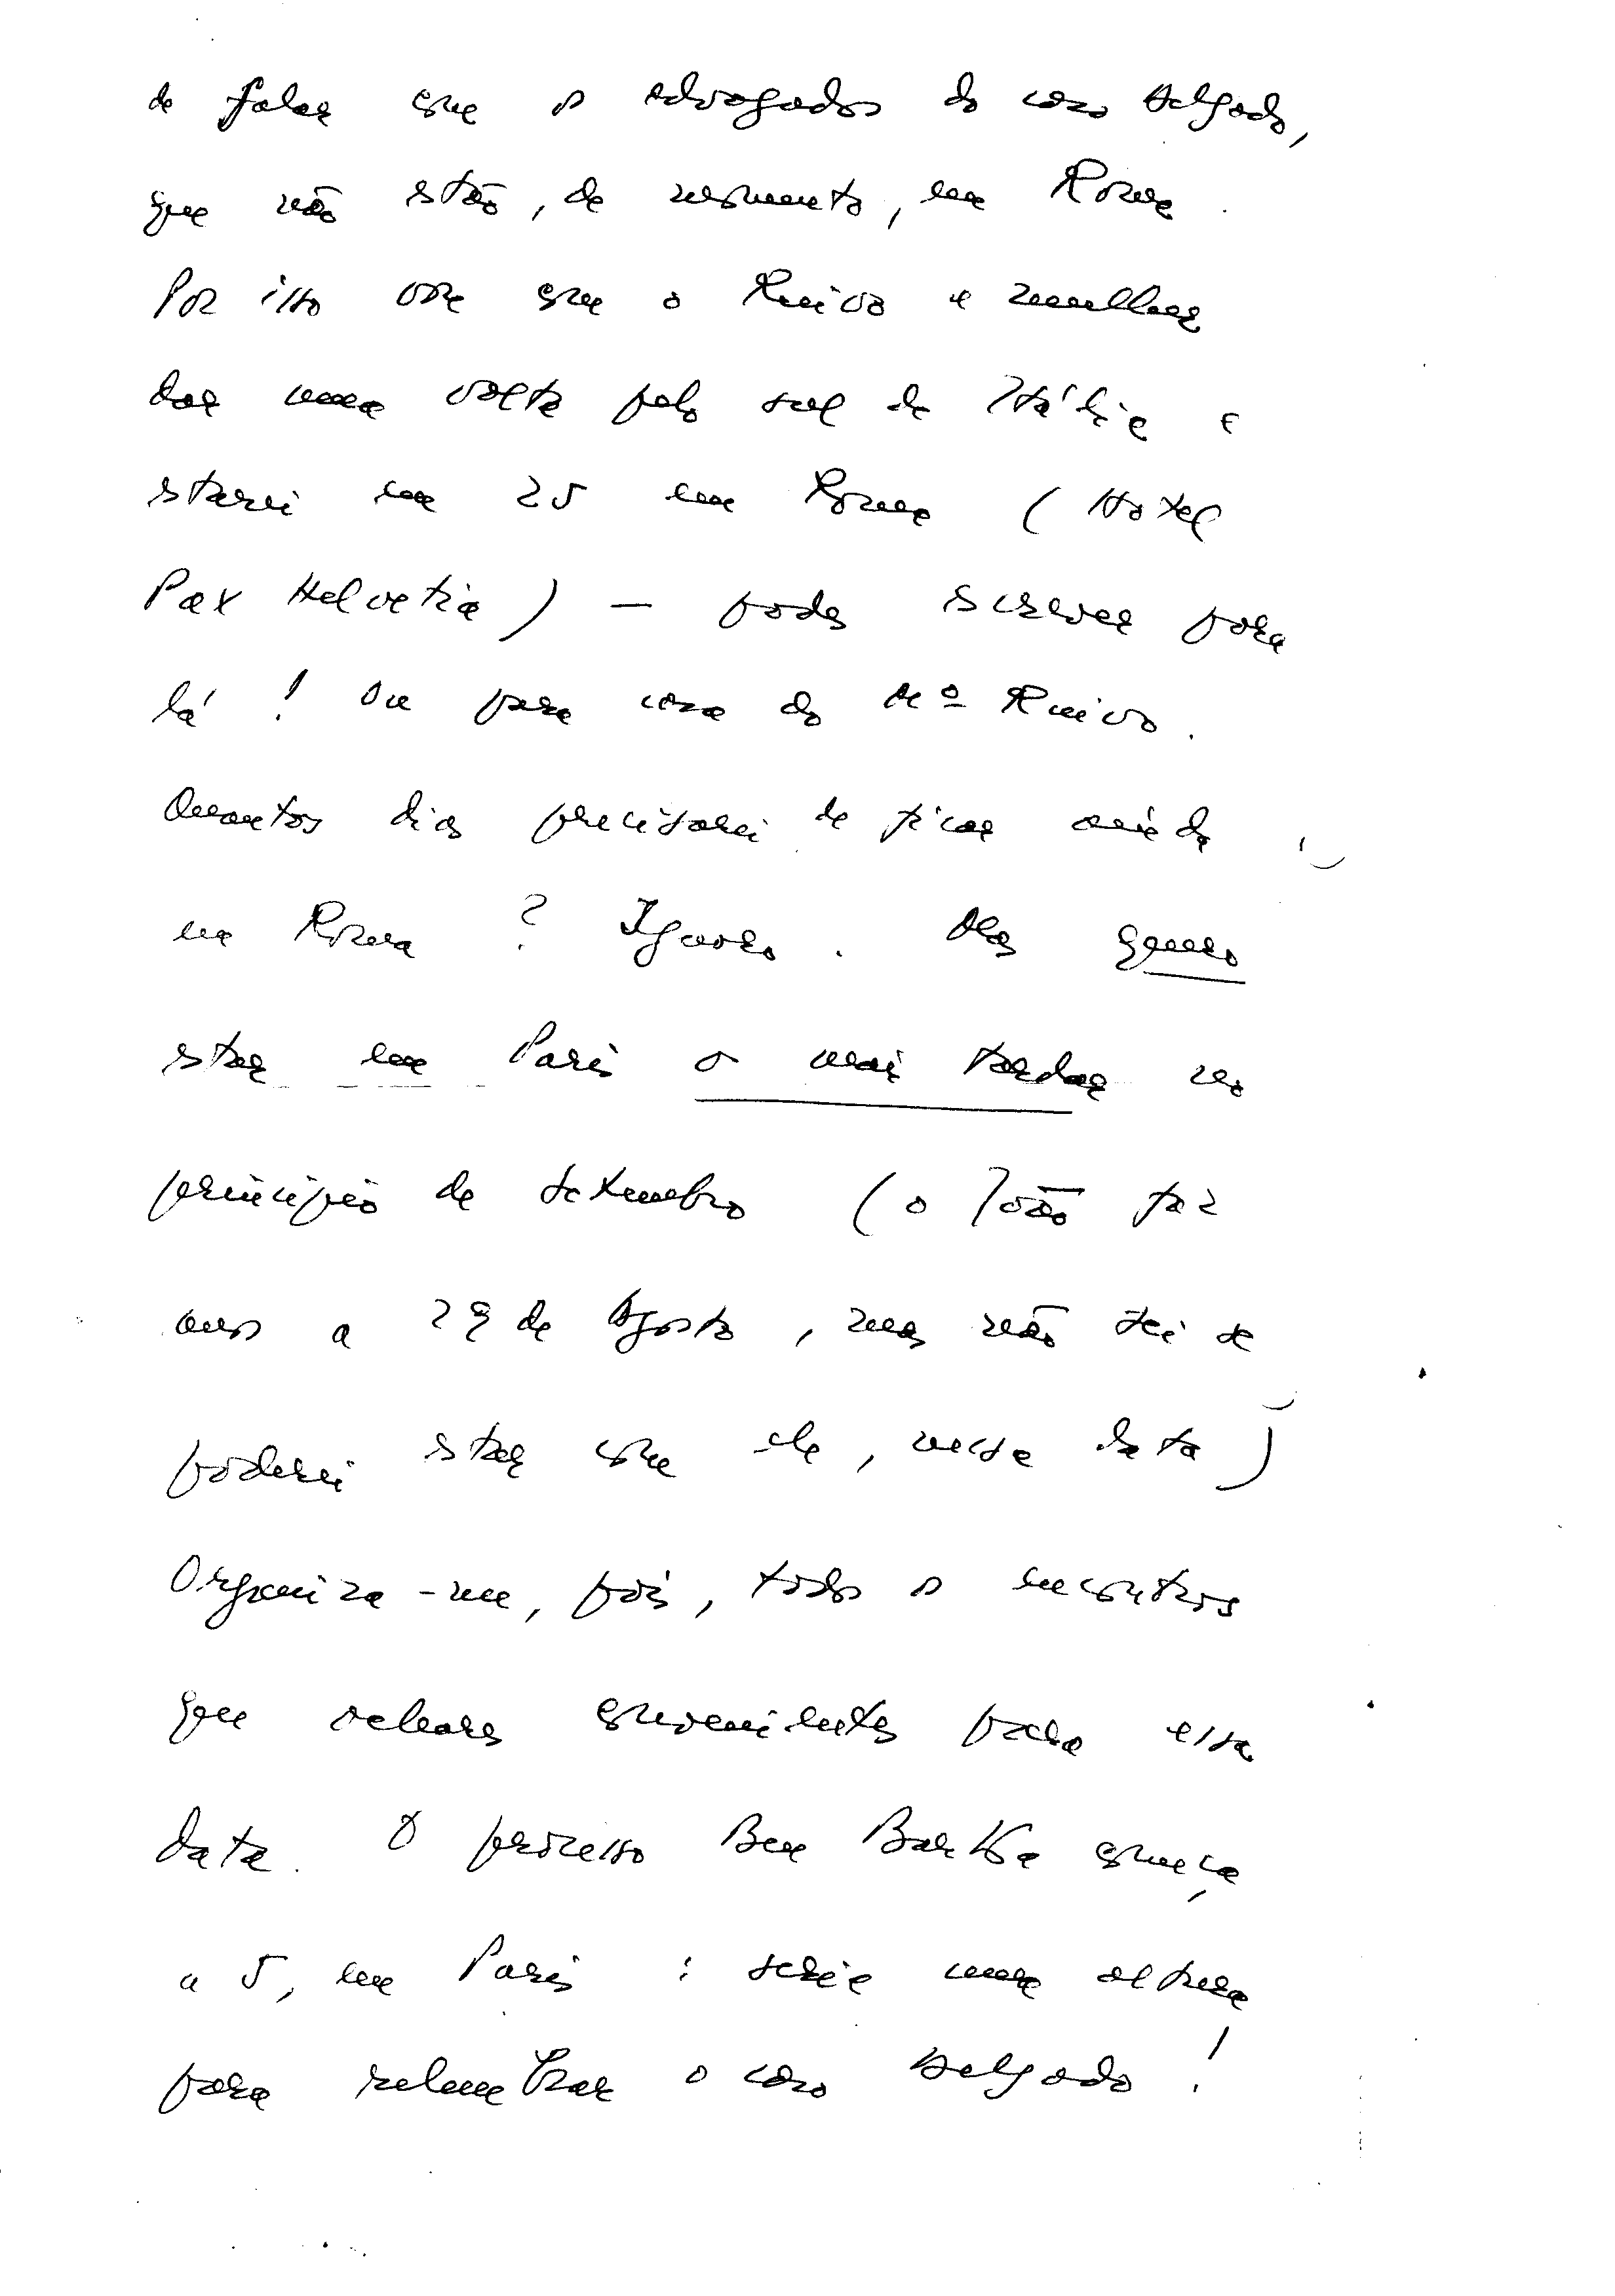 de falar com os advogados do caso Delgado,
que não estão, de momento, em Roma.
Por isso vou com o Ruivo e mulher
dar uma volta pelo sul de Itália e
estarei em 25 em Roma (Hotel
Pax Helvetia) — podes escrever para
lá! Ou para casa do Mº Ruivo.
Quantos dias precisarei de ficar ainda
em Roma? Ignoro. Mas quero
estar em Paris o mais tardar no
princípio de Setembro (o João faz
anos a 29 de Agosto, mas não sei se
poderei estar com ele, nessa data)
Organiza-me, pois, todos os encontros
que aches convenientes para essa
data. O processo Ben Barka começa
a 5, em Paris: seria uma altura
para relembrar o caso Delgado!